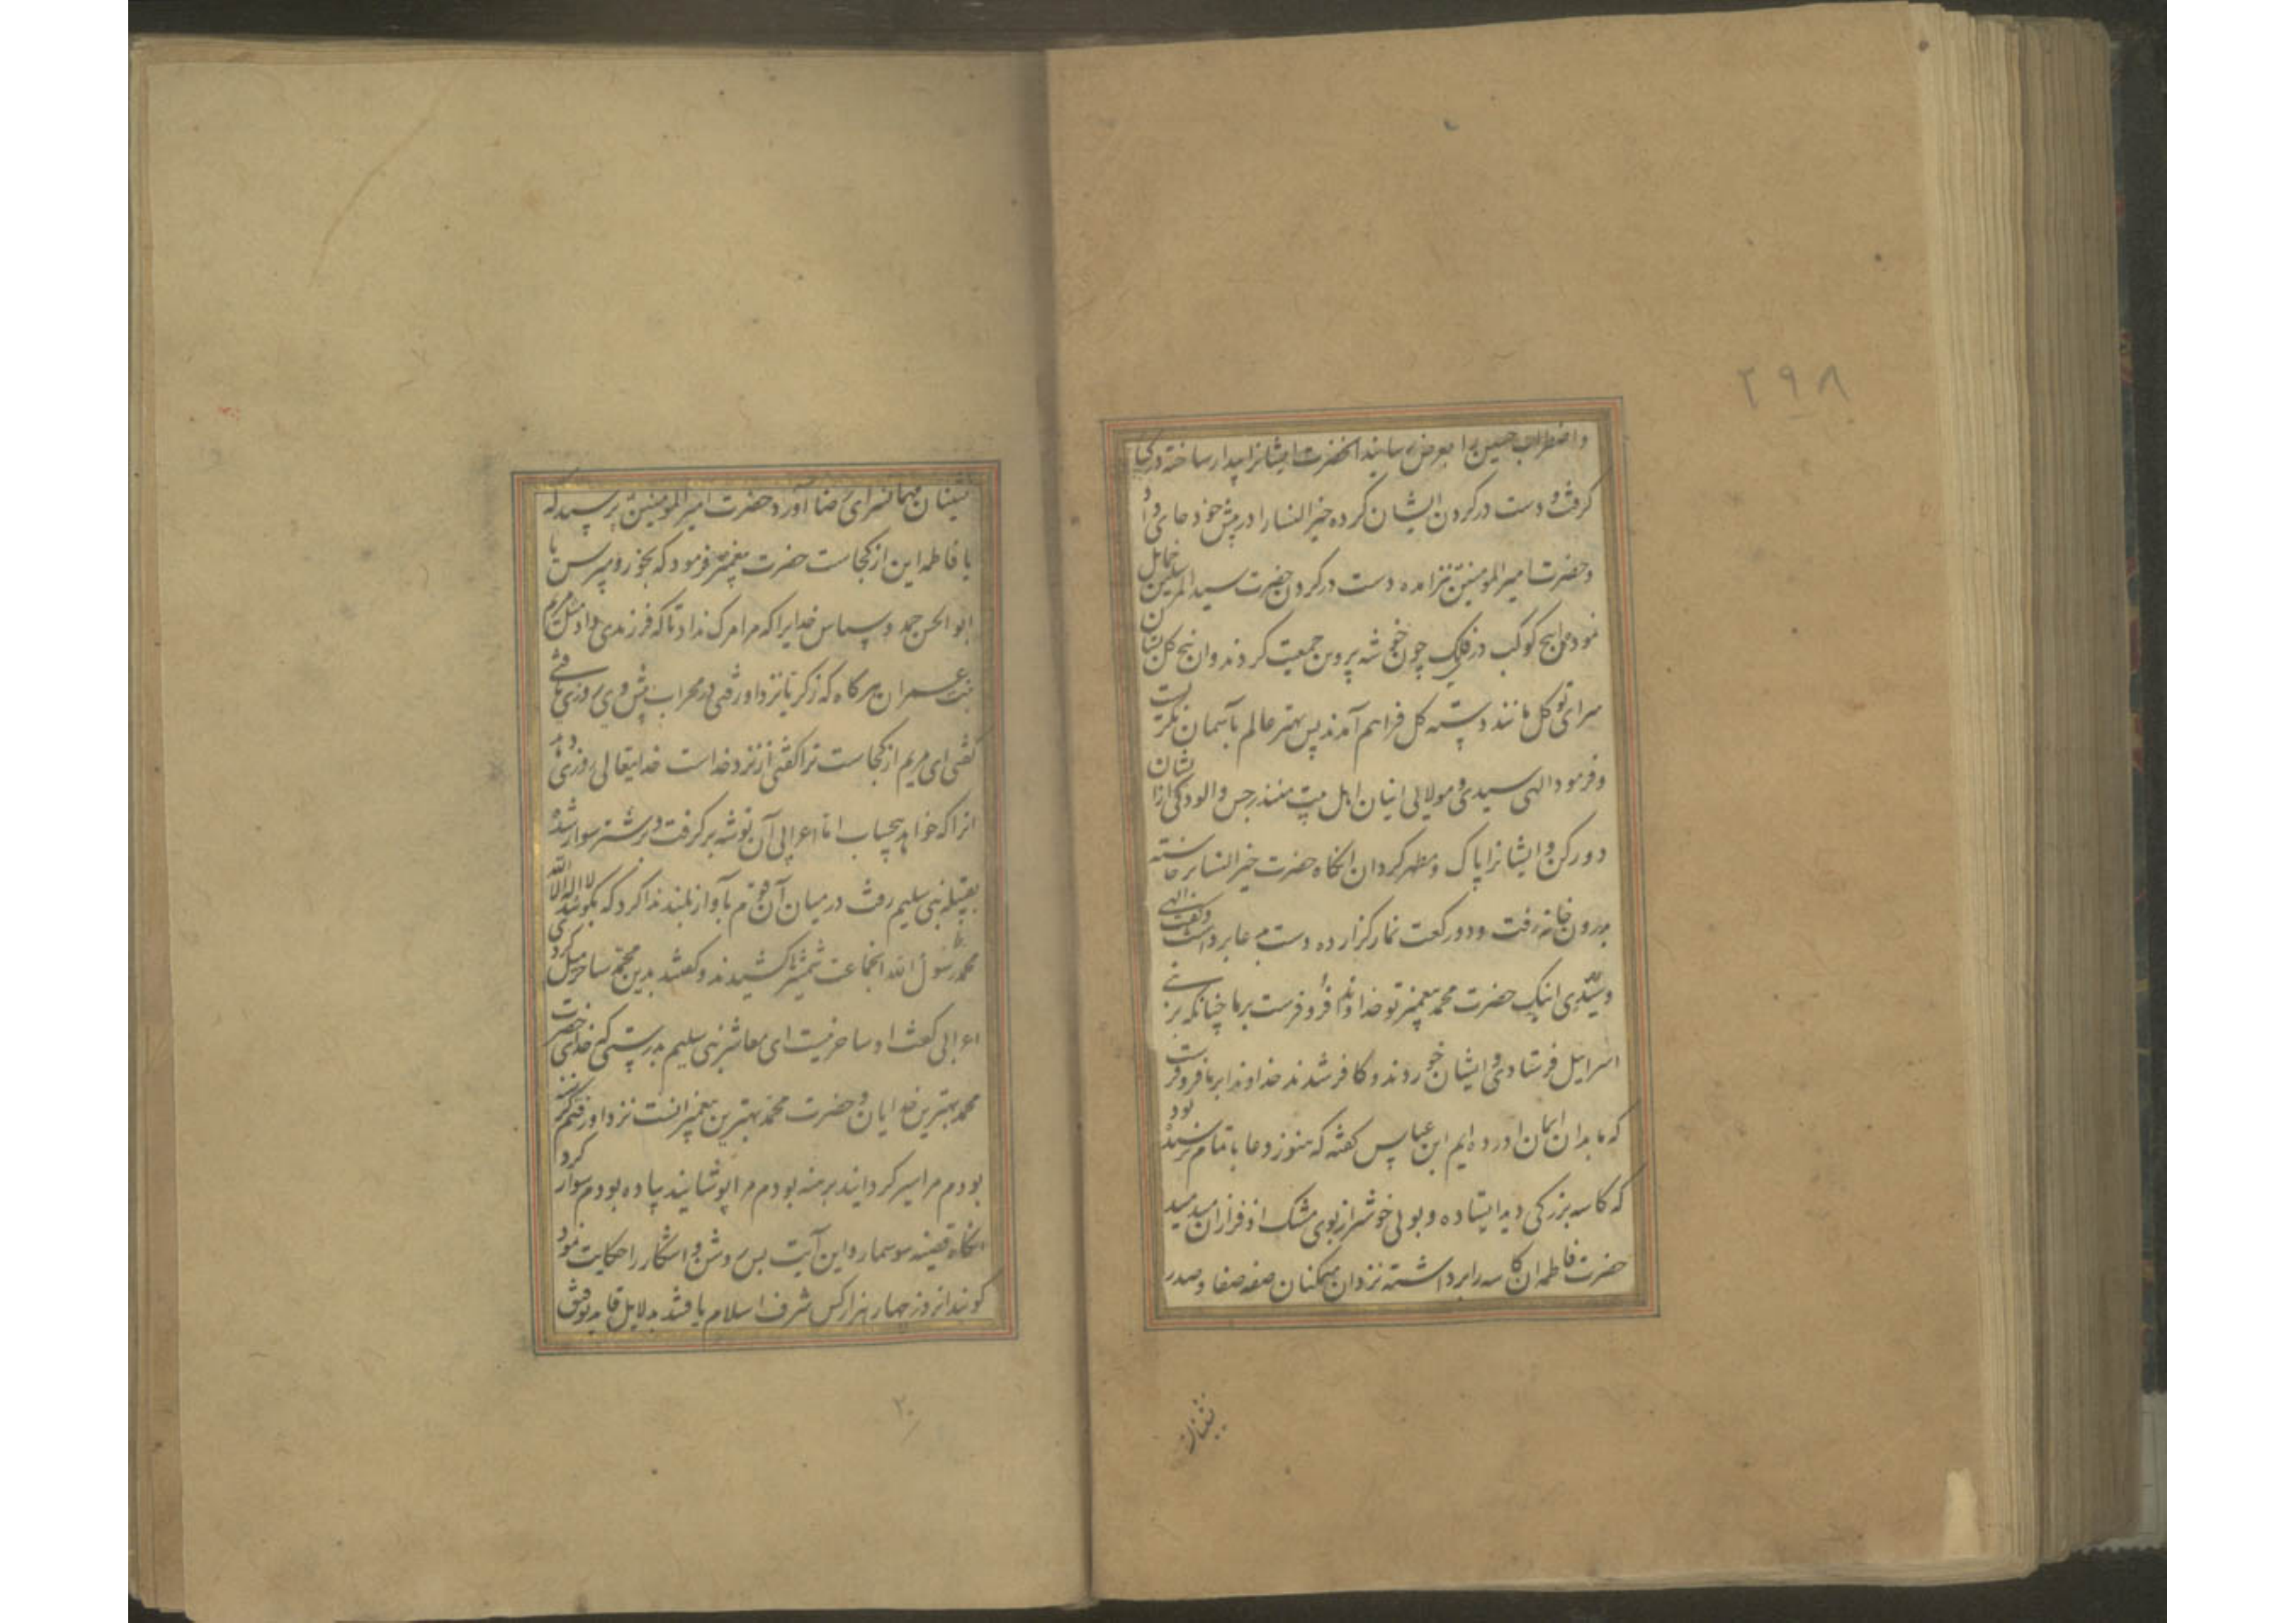 ۲۹۸
واضطراب حسین را بعرض رسانید آنحضرت ایشانرا بیدار ساخته در کنار
گرفت و دست در کردن ایشان کرده خیر النسا را در پیش خود جای داد
وحضرت امیر المومنین نیز آمده دست در کردن حضرت سید المرسلین حمایل
نمود این پنج کوکب در فلک چون خوشه پروین جمعیت کردند وان پنج کل
سرای توکل مانند دسته کل فراهم آمدند پس مهتر عالم بآسمان نکریست
وفرمود الهی سیدی ومولایی اینان اهل بیت منند رجس والودکی از ایشان
دور کن وایشانرا پاک ومطهر کردان انکاه حضرت خیر النسا برخاسته
بدرون خانه رفت ودو رکعت نماز کزارده دست بدعا برداشت وکفت الهی
وسیدی اینک حضرت محمد پیغمبر تو خداوندا فرو فرست برما چنانکه بر بنی
اسراییل فرستادی وایشان خوردند وکافر شدند خداوندا برما فرو فرست
که ما بدان ایمان اورده ایم ابن عباس کفته که هنوز دعا باتمام نرسیده بود
که کاسه بزرکی دید ایستاده وبویی خوشتر از بوی مشک اذفر از ان میدمید
حضرت فاطمه ان کاسه را برداشته نزد ان متمکنان صفه صفا وصدر
نشینان
نشینان مهمانسرای رضا آورد حضرت امیر المومنین پرسید که
یا فاطمه این از کجاست حضرت پیغمبر فرمود که بخور ومپرس یا
ابو الحسن حمد وسپاس خدایرا که مرا مرک نداد تا که فرزندی داد مثل مریم
بنت عمران هر کاه که زکریا نزد او رفتی در محراب پیش وی روزی یافتی
کفتی ای مریم از کجاست ترا کفتی از نزد خداست خدایتعالی روزی دهد
انرا که خواهد بیحساب اما اعرابی آن توشه برکرفت وبر شتر سوار شده
بقبیله بنی سلیم رفت در میان آن قوم بآواز بلند ندا کرد که بکویید لا اله الا الله
محمد رسول الله انجماعت شمشیرها کشیدند وکفتند بدین محمد ساحر میل کردی
اعرابی کفت او ساحر نیست ای معاشر بنی سلیم بدرستی که خدای حضرت
محمد بهترین خدایان وحضرت محمد بهترین پیغمبرانست نزد او رفتم کرسنه
بودم مرا سیر کردانید برهنه بودم مرا پوشانید پیاده بودم سوار کرد
انکاه قصه سوسمار واین آیت بس روشن واشکار را حکایت نمود
کویند انروز چهار هزار کس شرف اسلام یافتند بدلایل قاید توفیق
۳۰